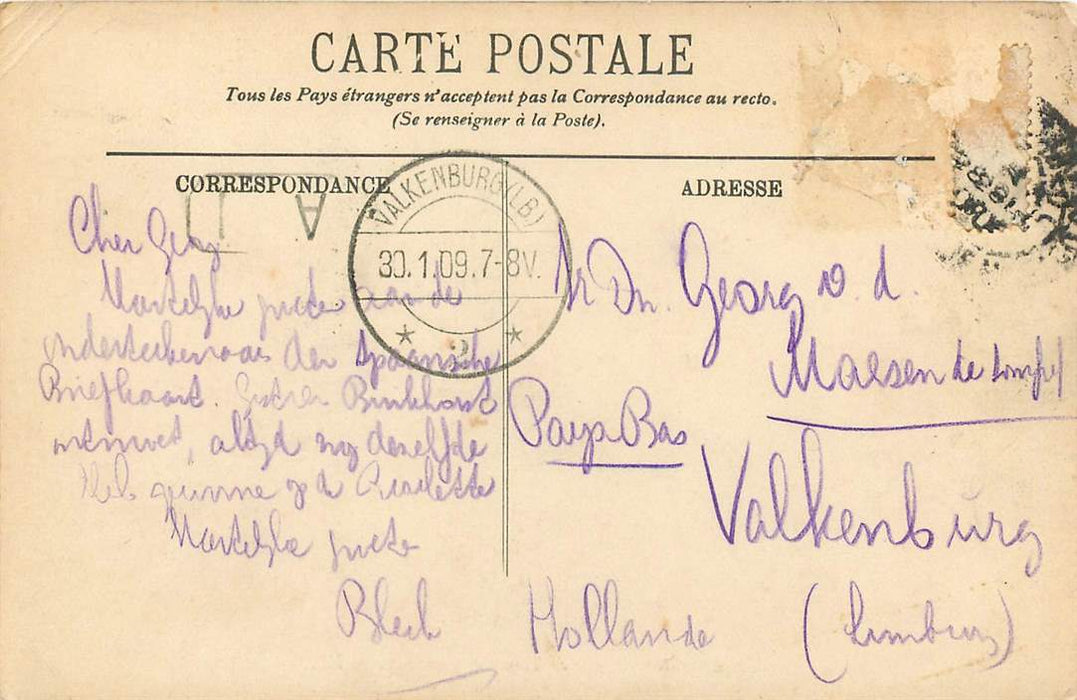 CARTE POSTALE
Tous les Pays étrangers n'acceptent pas la Correspondance au recto.
(Se renseigner à la Poste).
CORRESPONDANCE
ADRESSE
VALKENBURG (LB)
30.1.09.7-8V.
2
Cher Georg
Hartelyke groete aan de
den Spaansche
Briefkaart. Binkhorst
ontmoet, altyd nog dezelfde
Heb gewonne op de Roulette
Hartelyke groete
Georg v. d.
Maesen de
Pays Bas
Valkenburg
Hollande
(Limburg)